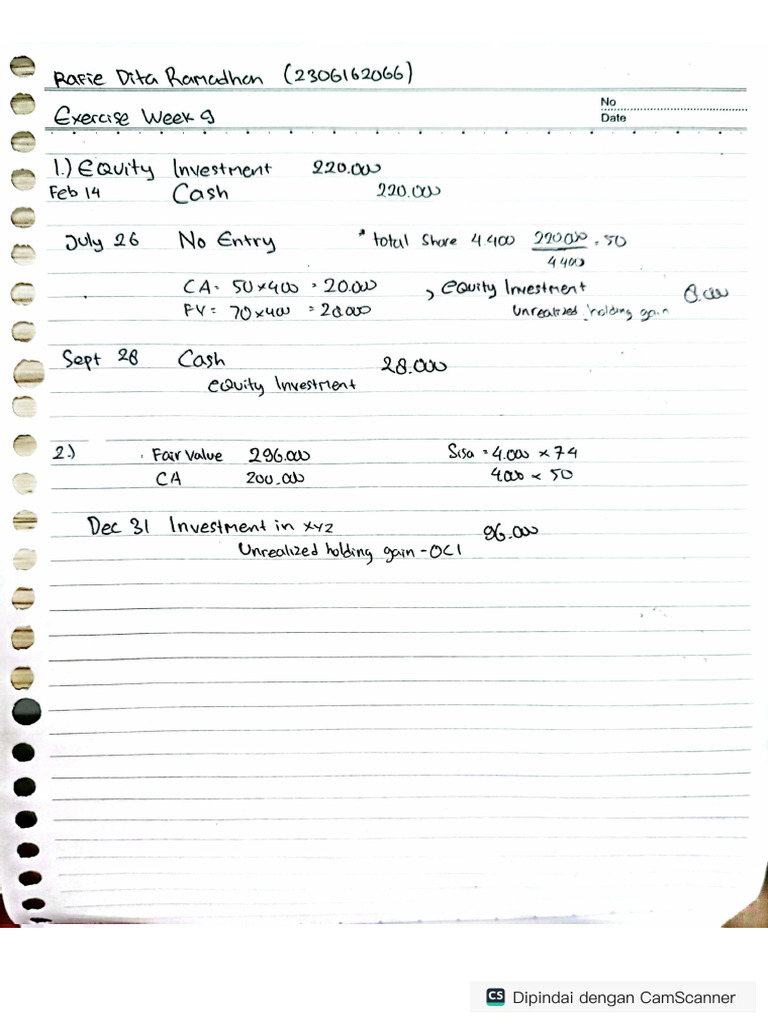 Rafie Dita Ramadhan (2306162066)
No
Exercise Week 9
Date
1.) Equity Investment 220.000
Feb 14 Cash 220.000
July 26 No Entry * total share 4 400 220 000 = 50
4 400
CA = 50 x 400 = 20.000 , Equity Investment 8.000
FV = 70 x 400 = 28.000 Unrealized holding gain
Sept 28 Cash 28.000
equity Investment
2.) Fair Value 296.000 Sisa = 4.000 x 74
CA 200.000 4.000 x 50
Dec 31 Investment in xyz 96.000
Unrealized holding gain - OCI
CS Dipindai dengan CamScanner